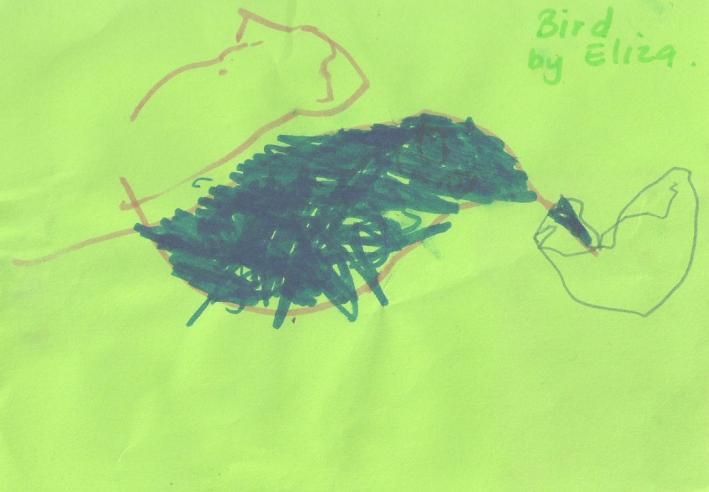 Bird
by Eliza.